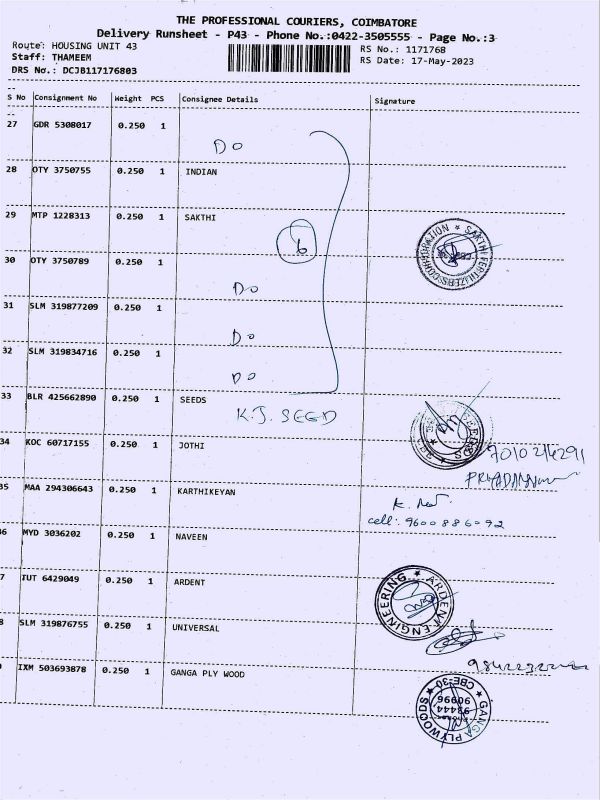 THE PROFESSIONAL COURIERS, COIMBATORE
Delivery Runsheet - P43 - Phone No.:0422-3505555 - Page No.:3
Route: HOUSING UNIT 43
RS No.: 1171768
Staff: THAMEEM
RS Date: 17-May-2023
DRS No.: DCJB117176803
S No Consignment No Weight PCS Consignee Details Signature
27 GDR 5308017 0.250 1
Do
28 OTY 3750755 0.250 1 INDIAN
29 MTP 1228313 0.250 1 SAKTHI
6
SAKTHI FERTILIZERS CORPORATION
30 OTY 3750789 0.250 1
Do
31 SLM 319877209 0.250 1
Do
32 SLM 319834716 0.250 1
Do
33 BLR 425662890 0.250 1 SEEDS
K.J. SEED
34 KOC 60717155 0.250 1 JOTHI
35 MAA 294306643 0.250 1 KARTHIKEYAN
cell: 9600886092
36 MYD 3036202 0.250 1 NAVEEN
7 TUT 6429049 0.250 1 ARDENT
ARDENT ENGINEERING
8 SLM 319876755 0.250 1 UNIVERSAL
IXM 503693878 0.250 1 GANGA PLY WOOD
GANGA PLYWOODS
CBE-30
93444
90996